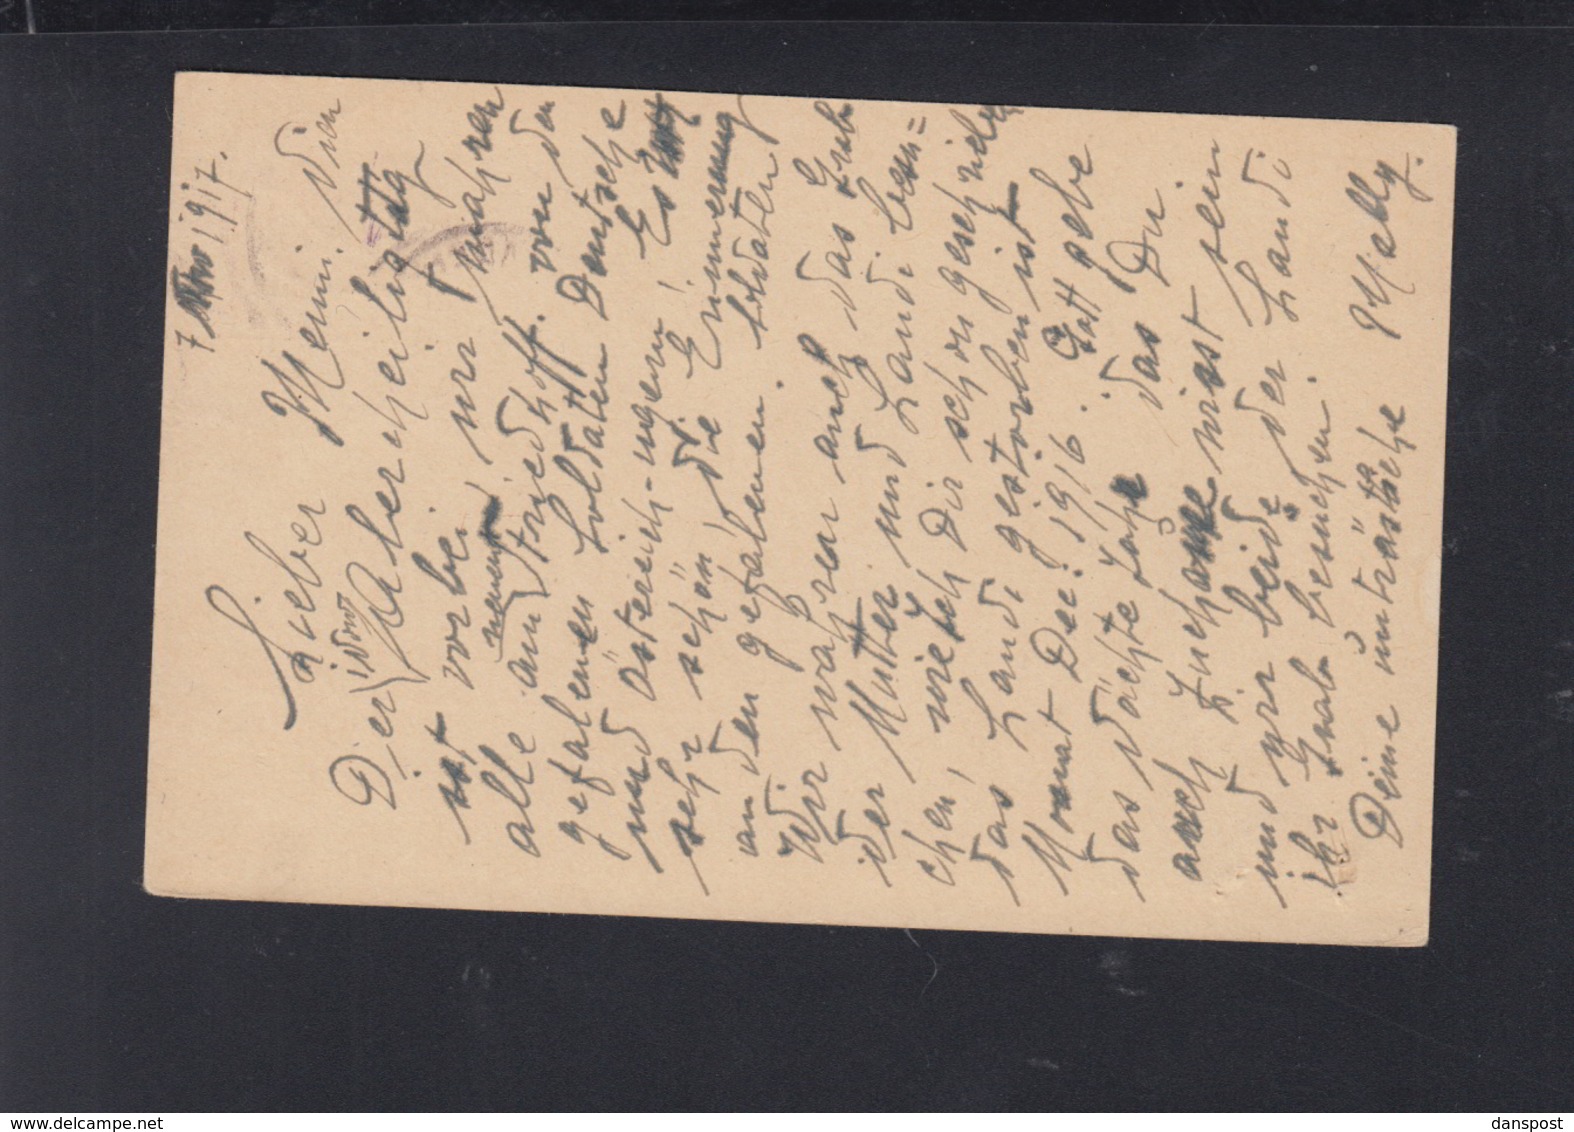 7 Nov 1917.
Lieber Menni. Dier
Der (ivor) Aberscheiligtag
ist vorbei, wir wahren
alle am (namen) Friedhoff. von den
gefalenen Soldaten Deutsche
und östereich-ungern! Es
sehr schön! die Erinnerung
an den gefalenen. Soldaten!
Wir wahren auch das Grab
der Mutter und Landi besu=
chen! wie ich Dir schon geschriben
das Landi gistorben ist
Monat Dec. 1916. Gott gebe
das nächte Jahr das Du
auch zuhause wirst sein
und wir beide der Landi
ihr Grab besuchen.
Deine untröstliche Melly.
www.delcampe.net
danspost